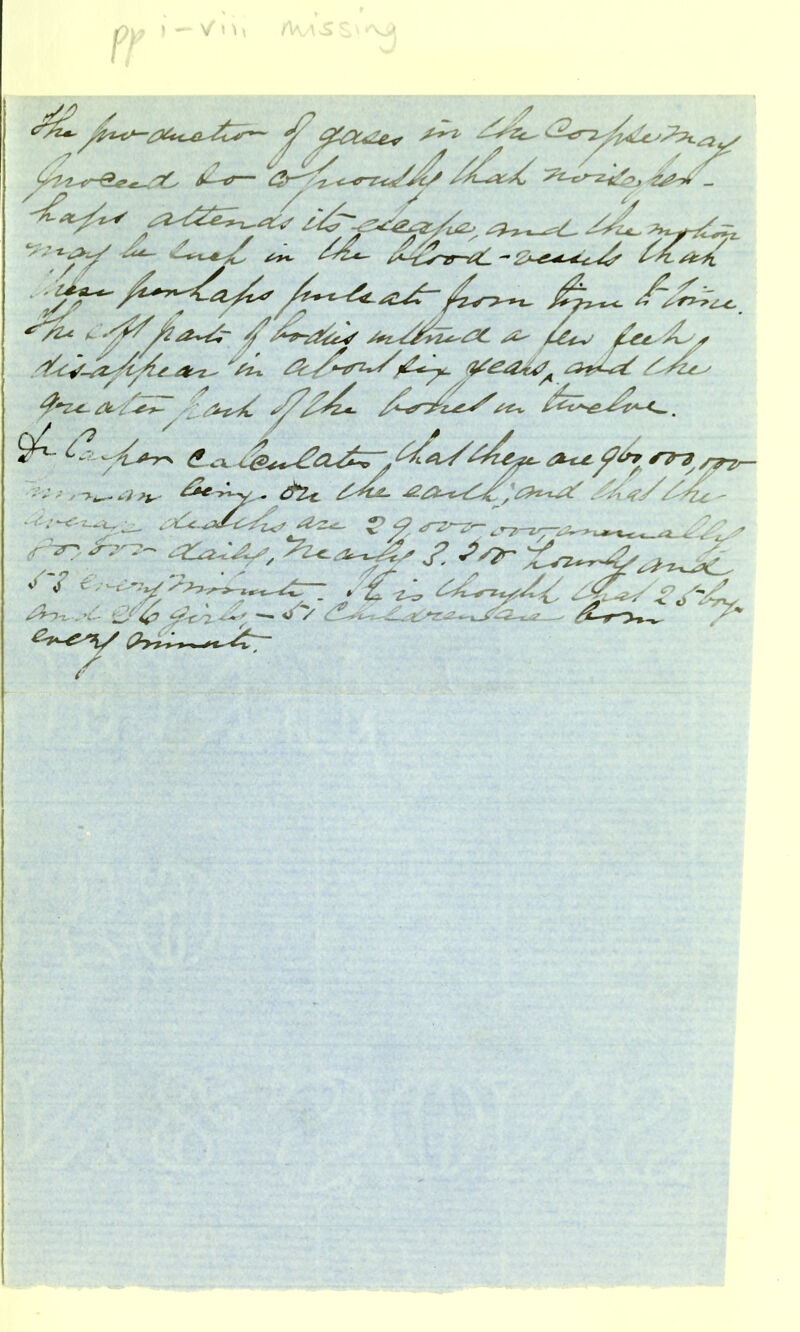 pp i-viii missing
The production of gases in the Corpse may
proceed so copiously that noise, per-
haps attends its escape, and the motion
may be such in the blood-vessels that
these perhaps pulsate from time to time.
The soft parts of bodies interred a few feet
disappear in about six years, and the
greater part of the bones in twelve.
Dr Casper calculates that there are 960 000,000
human beings on the earth; and that the
average deaths are 29,000,000, annually
80,000 daily, nearly 3.300 hourly and
53 every minute. It is thought that 25 boys
and 26 girls, - 51 Children are born
every minute.